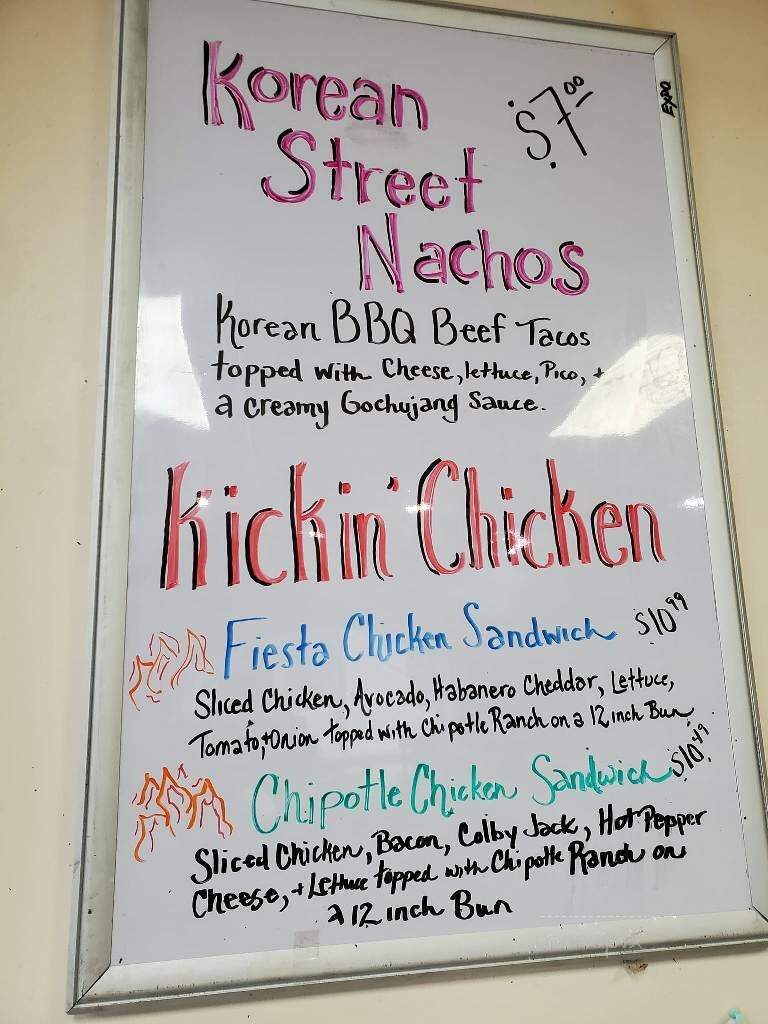 Korean
$7.00
EXPO
Street
Nachos
Korean BBQ Beef Tacos
topped with Cheese, lettuce, Pico, +
a creamy Gochujang Sauce.
Kickin' Chicken
Fiesta Chicken Sandwich $10.99
Sliced Chicken, Avocado, Habanero Cheddar, Lettuce,
Tomato, + Onion topped with Chipotle Ranch on a 12 inch Bun
Chipotle Chicken Sandwich $10.49
Sliced Chicken, Bacon, Colby Jack, Hot Pepper
Cheese, + Lettuce topped with Chipotle Ranch on
a 12 inch Bun